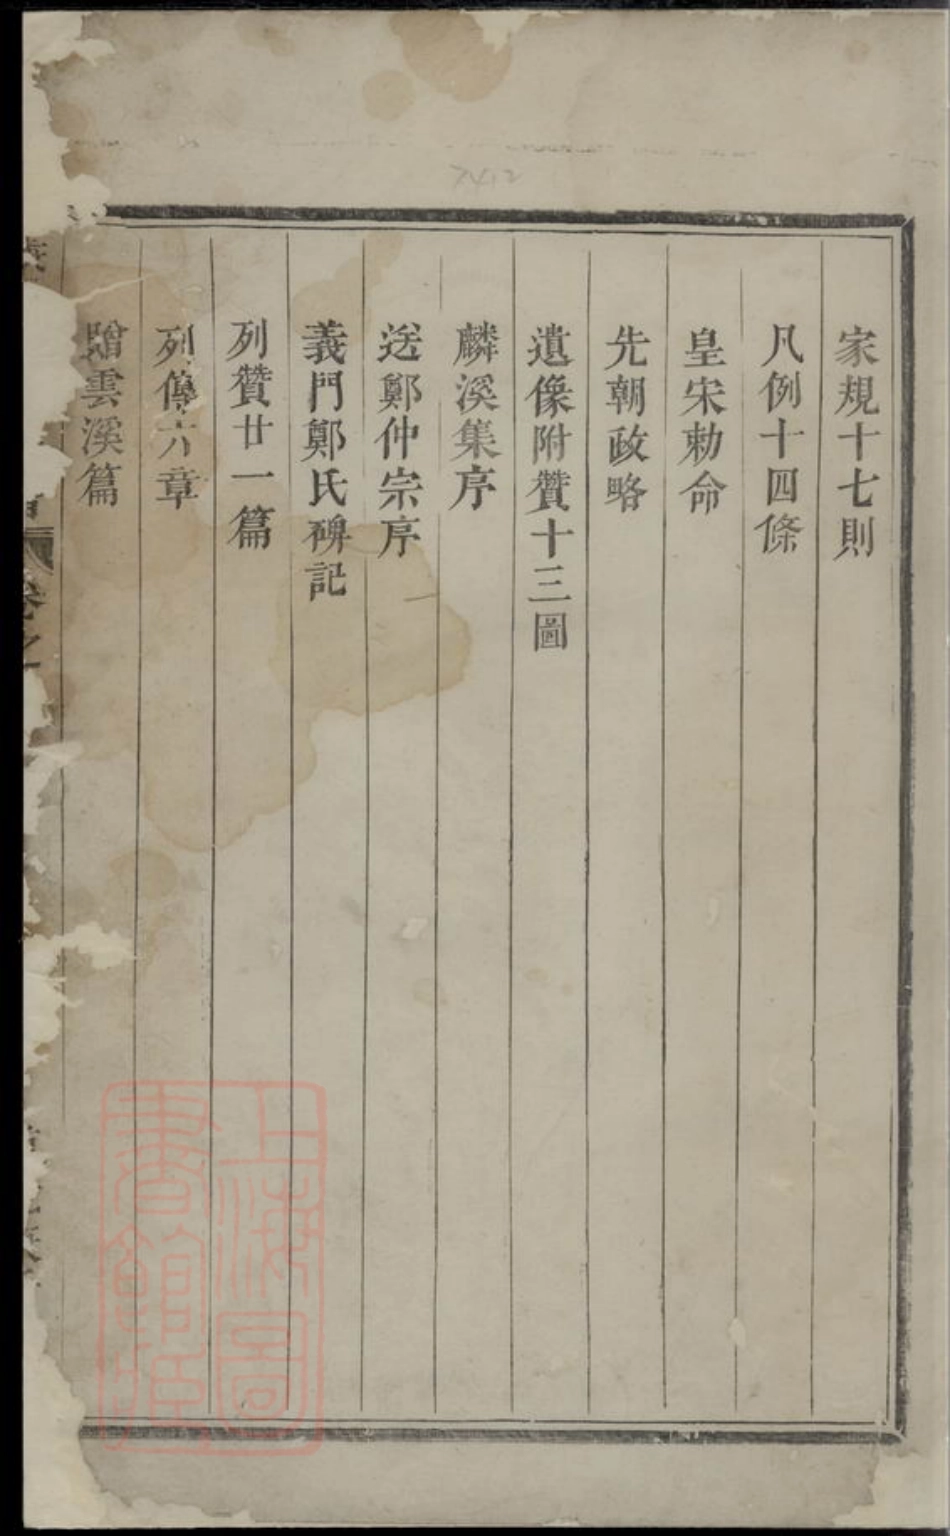 家規十七則
凡例十四條
皇宋勅命
先朝政略
遺像附贊十三圖
麟溪集序
送鄭仲宗序
義門鄭氏碑記
列贊廿一篇
列傳六章
贈雲溪篇
卷之
上海圖
書館藏
7412